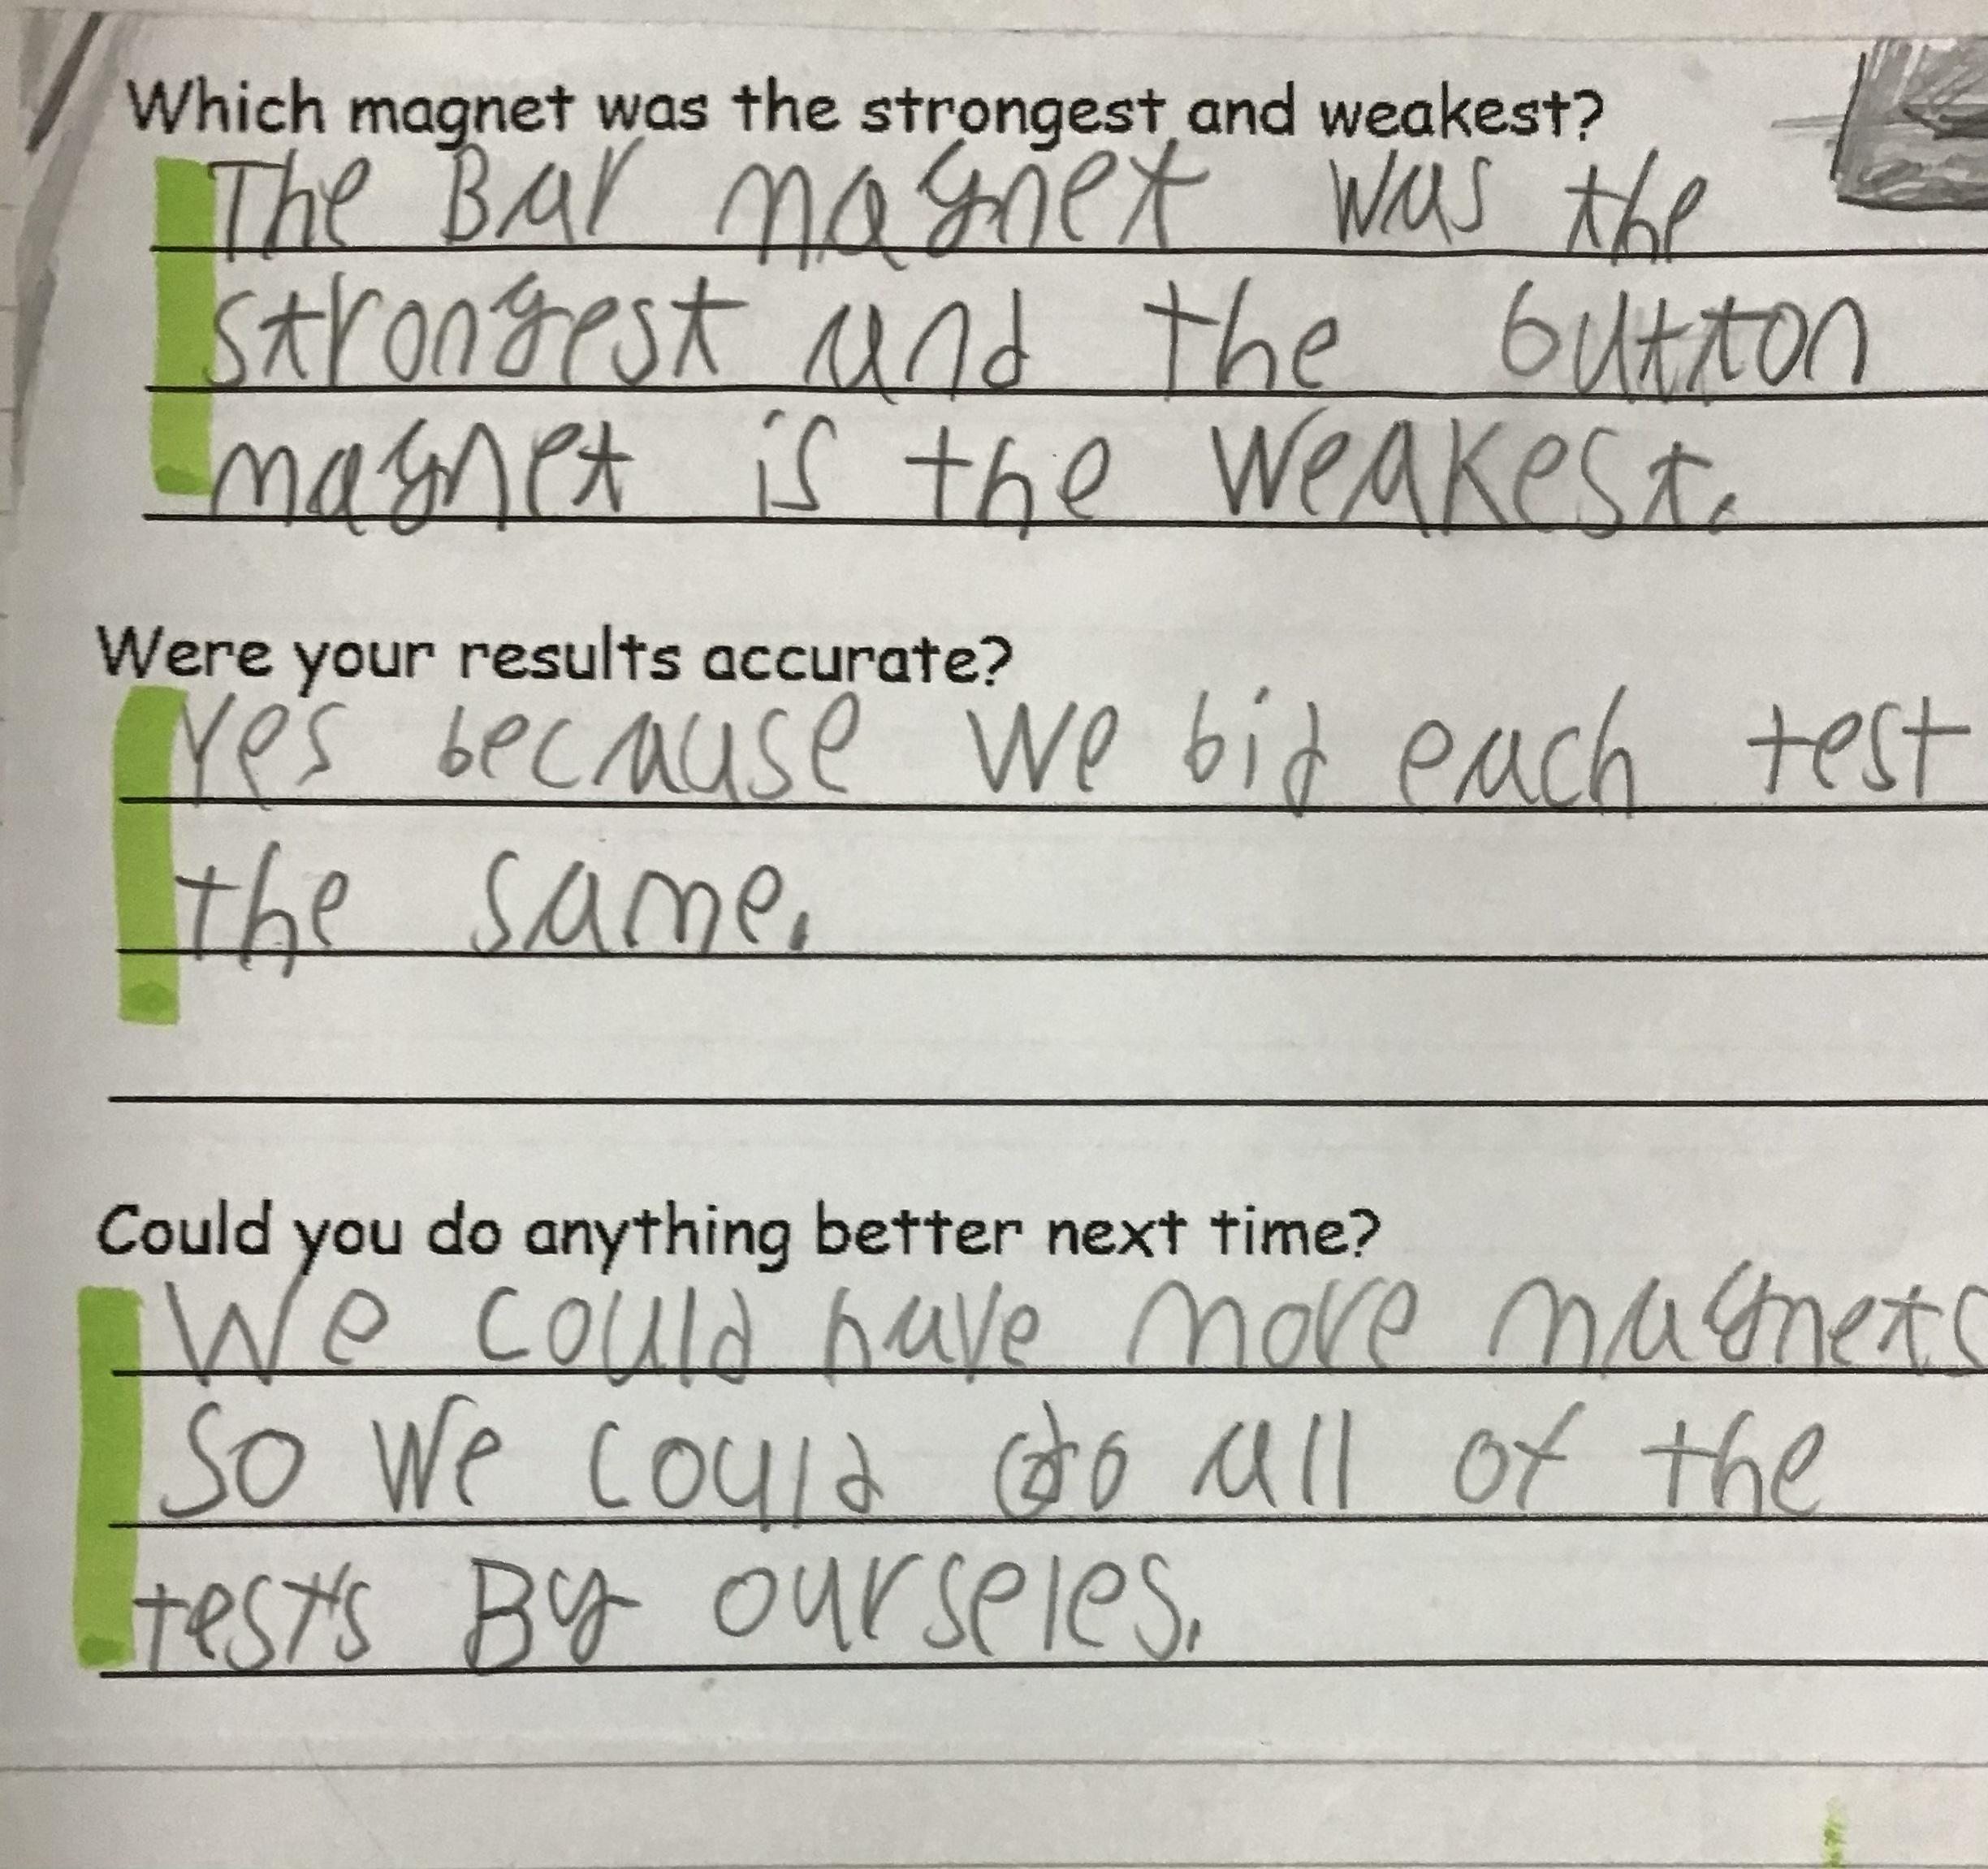 Which magnet was the strongest and weakest?
The Bar magnet was the
strongest and the button
magnet is the weakest.
Were your results accurate?
Yes because we bid each test
the same.
Could you do anything better next time?
We could have more magnets
So we could do all of the
tests By ourseles.